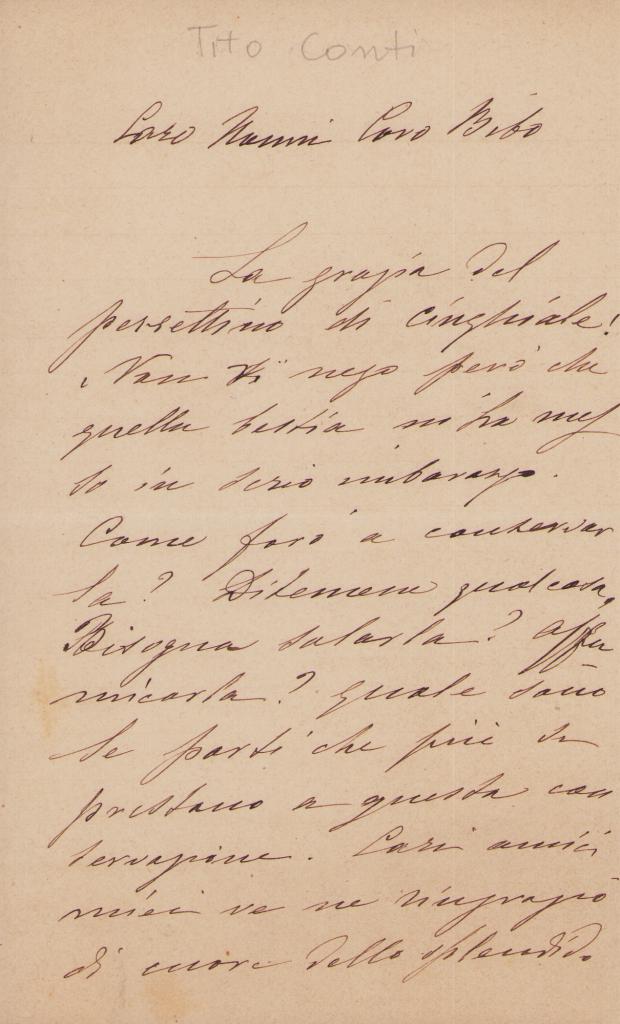 Tito Conti
Caro Nanni Caro Bibo
La grazia del
pezzettino di cinghiale!
Non vi nego però che
quella bestia mi ha mes
so in serio imbarazzo.
Come farò a conservar
la? Ditemene qualcosa,
Bisogna salarla? affu
micarla? quale sono
le parti che più si
prestano a questa con
servazione. Cari amici
miei ve ne ringrazio
di cuore dello splendido